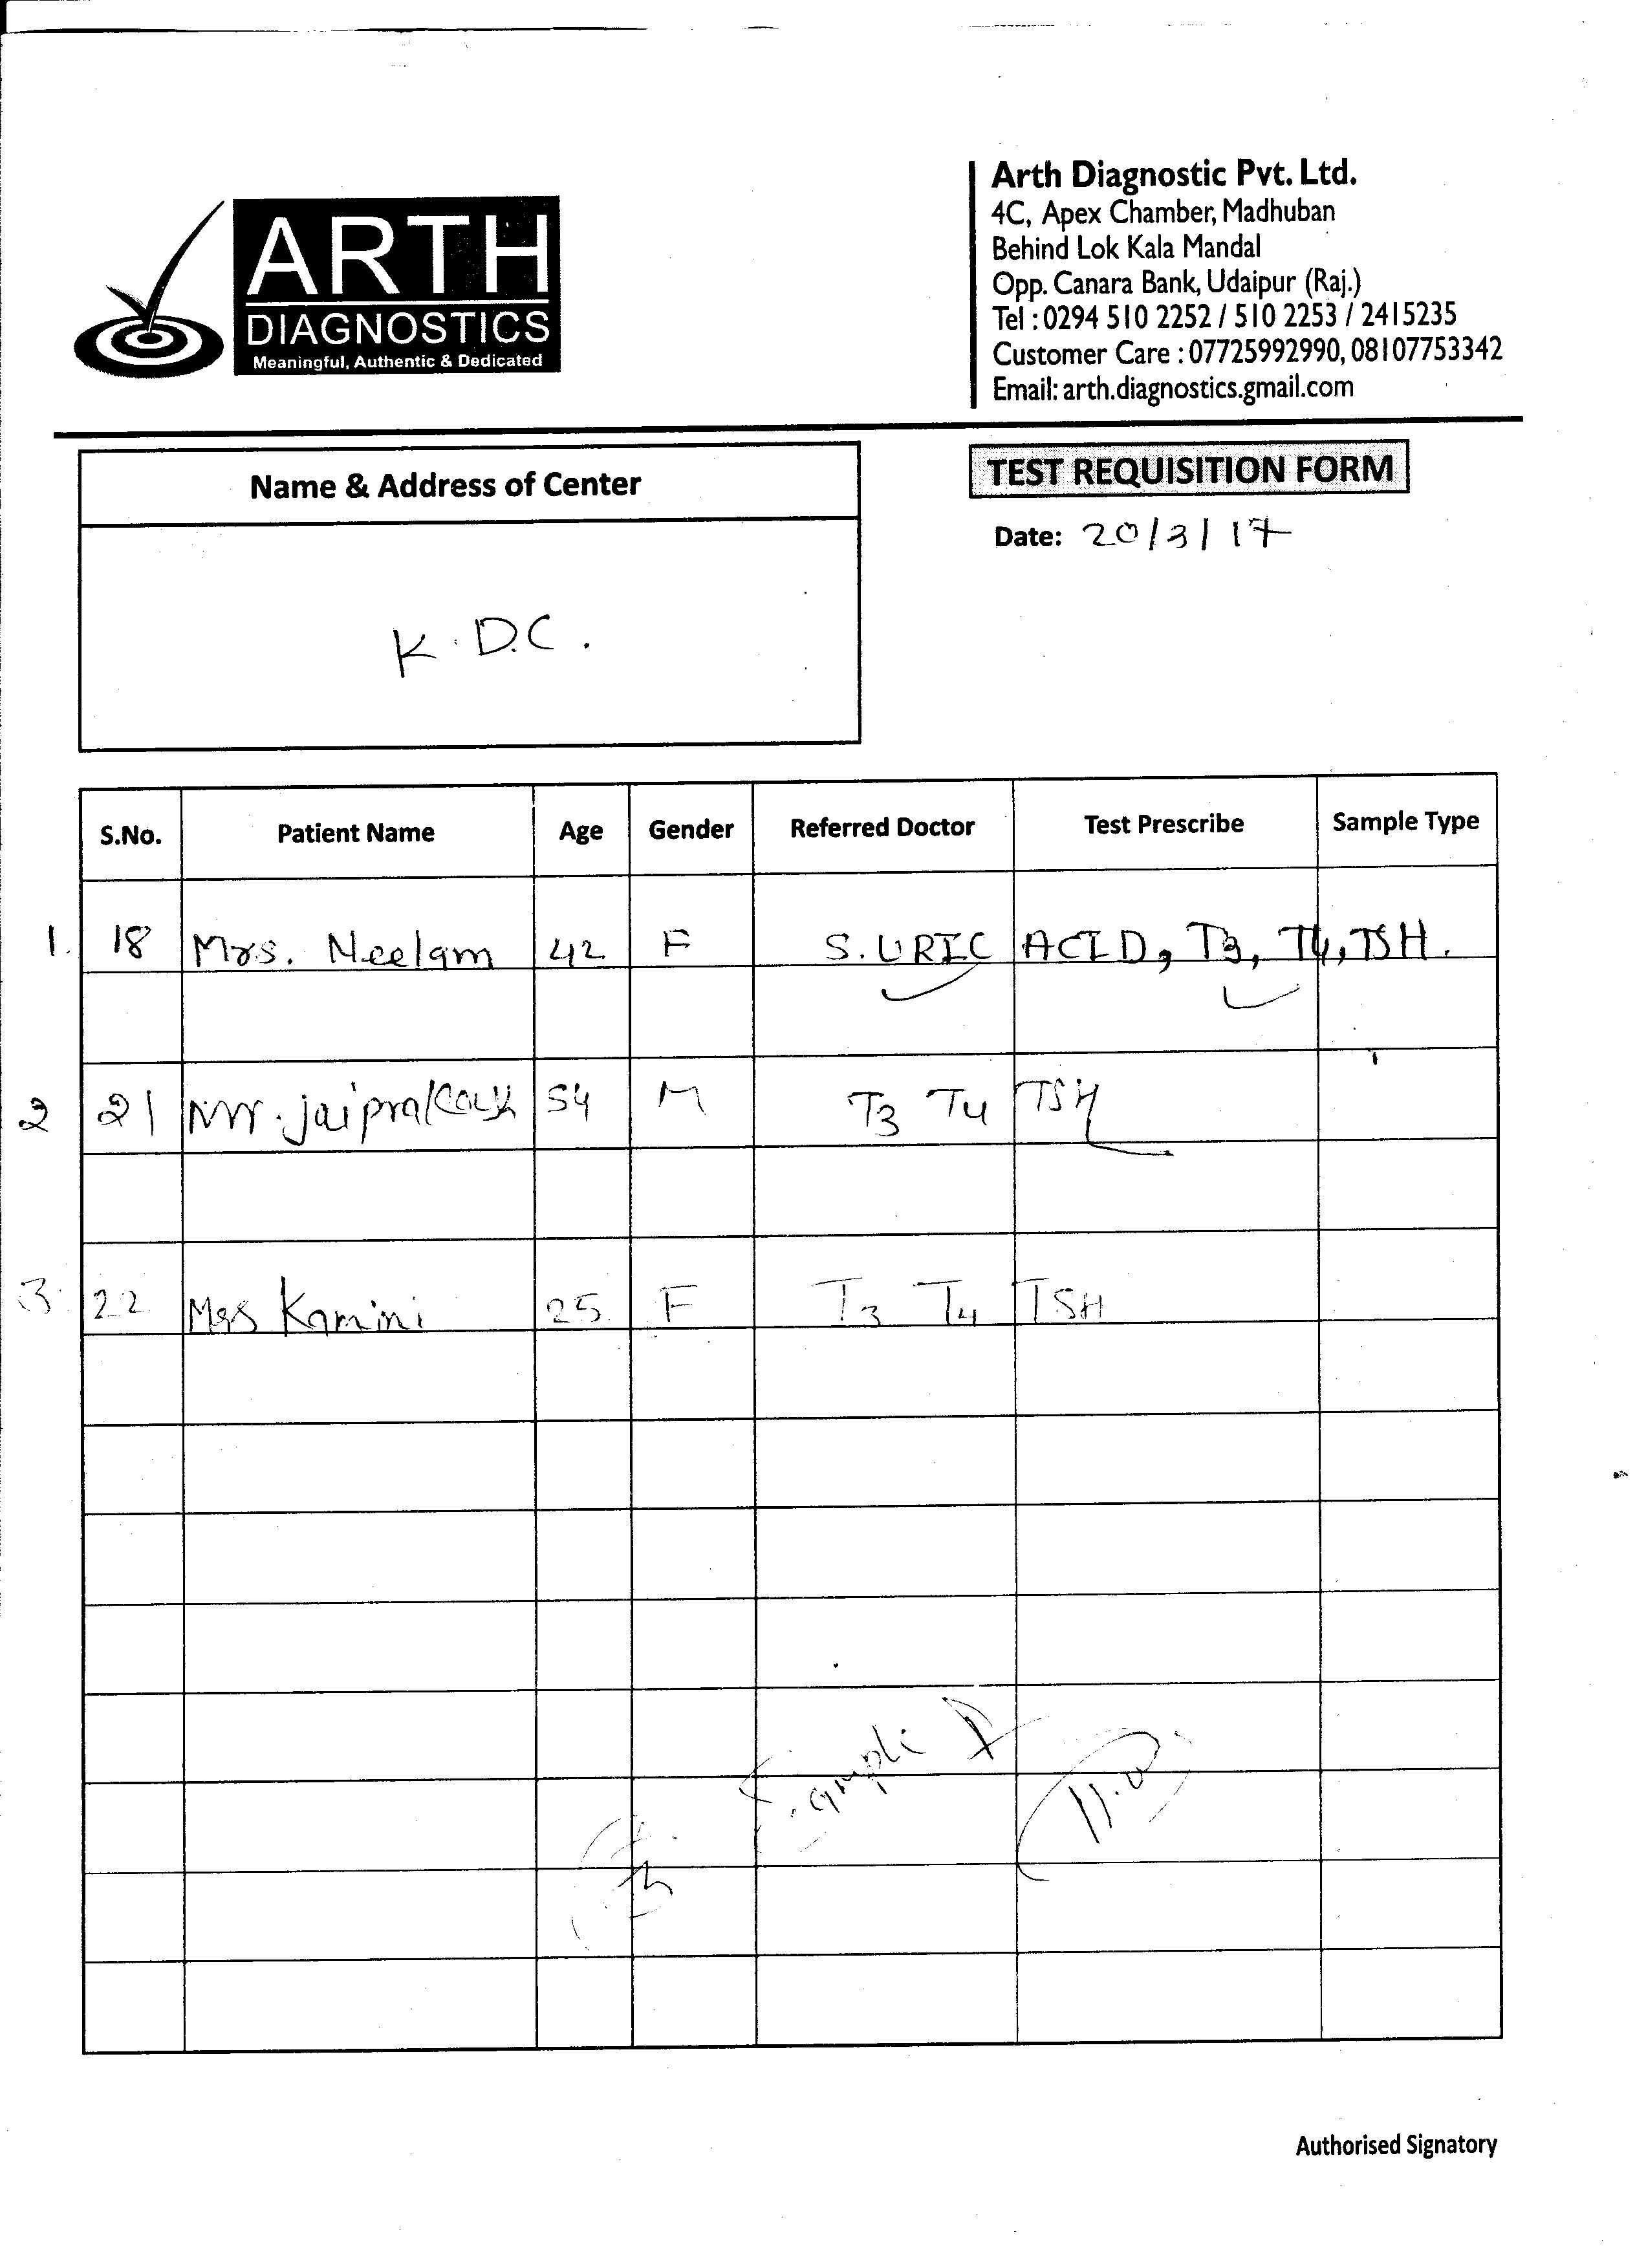 ARTH
DIAGNOSTICS
Meaningful, Authentic & Dedicated
Arth Diagnostic Pvt. Ltd.
4C, Apex Chamber, Madhuban
Behind Lok Kala Mandal
Opp. Canara Bank, Udaipur (Raj.)
Tel : 0294 510 2252 / 510 2253 / 2415235
Customer Care : 07725992990, 08107753342
Email: arth.diagnostics.gmail.com
Name & Address of Center
K. D.C.
TEST REQUISITION FORM
Date: 20/3/17
S.No. Patient Name Age Gender Referred Doctor Test Prescribe Sample Type
1. 18 Mrs. Neelam 42 F S. URIC ACID, T3, T4, TSH.
2 21 Mr. jaiprakash 54 M T3 T4 TSH
3. 22 Kamini 25 F T3 T4 TSH
Authorised Signatory